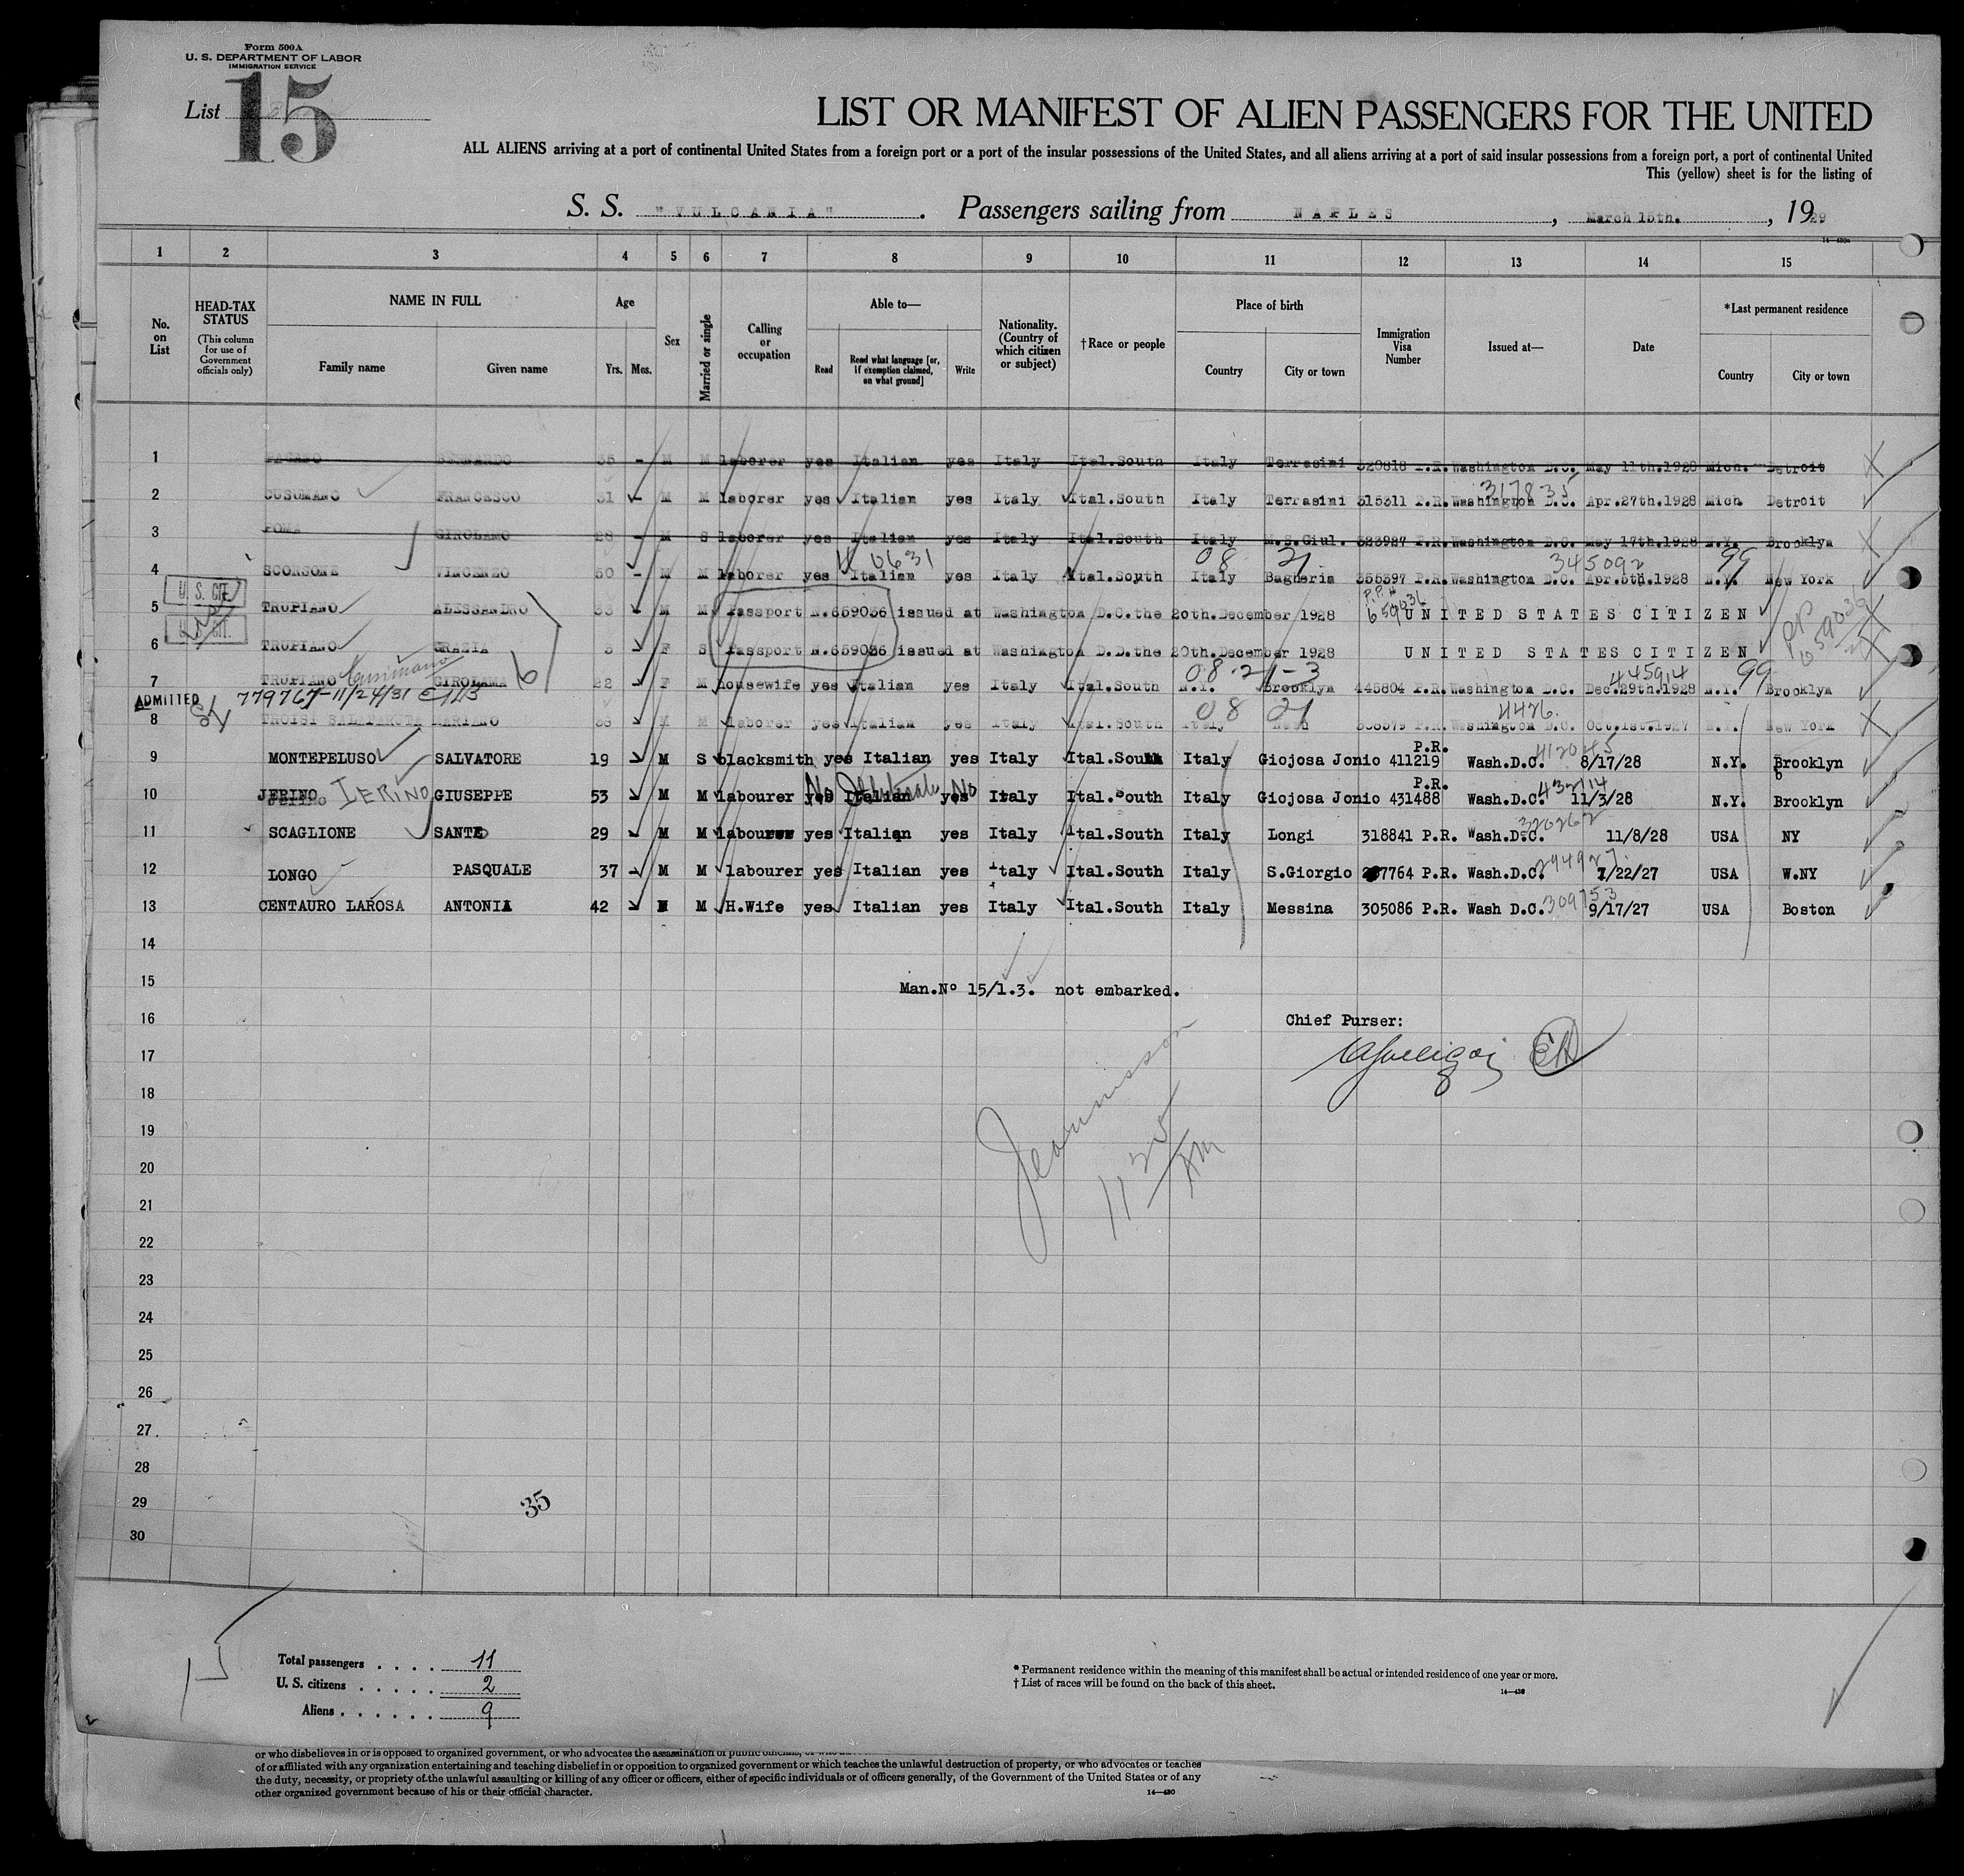 Form 500A
U. S. DEPARTMENT OF LABOR
IMMIGRATION SERVICE
List 15
LIST OR MANIFEST OF ALIEN PASSENGERS FOR THE UNITED
ALL ALIENS arriving at a port of continental United States from a foreign port or a port of the insular possessions of the United States, and all aliens arriving at a port of said insular possessions from a foreign port, a port of continental United
This (yellow) sheet is for the listing of
S. S. "VULCANIA". Passengers sailing from NAPLES, March 15th., 1929
14—430a
1 2 3 4 5 6 7 8 9 10 11 12 13 14 15
No. on List
HEAD-TAX STATUS
(This column for use of Government officials only)
NAME IN FULL
Family name
Given name
Age
Yrs. Mos.
Sex
Married or single
Calling or occupation
Able to—
Read
Read what language [or, if exemption claimed, on what ground]
Write
Nationality. (Country of which citizen or subject)
†Race or people
Place of birth
Country
City or town
Immigration Visa Number
Issued at—
Date
*Last permanent residence
Country
City or town
1 PAGANO BERNARDO 35 - M M laborer yes Italian yes Italy Ital.South Italy Terrasini 320818 P.R. Washington D.C. May 11th.1928 Mich. Detroit
317835
2 CUSUMANO FRANCESCO 31 - M M laborer yes Italian yes Italy Ital.South Italy Terrasini 315311 P.R. Washington D.C. Apr.27th.1928 Mich Detroit
3 POMA GIROLAMO 28 - M S laborer yes Italian yes Italy Ital.South Italy M.S.Giul. 323927 P.R. Washington D.C. May 17th.1928 N.Y. Brooklyn
0631 08 21 345092 99
4 SCORSONE VINCENZO 50 - M M laborer yes Italian yes Italy Ital.South Italy Bagheria 355397 P.R. Washington D.C. Apr.5th.1928 N.Y. New York
U.S. CIT.
P.P.# 659036
5 TROPIANO ALESSANDRO 33 M M Passport N.659036 issued at Washington D.C.the 20th.December 1928 UNITED STATES CITIZEN
U.S. CIT.
PP 659036
6 TROPIANO GRAZIA 3 F S Passport N.659036 issued at Washington D.D.the 20th.December 1928 UNITED STATES CITIZEN
08-21-3 445914 99
7 TROPIANO GIROLAMA 22 F M housewife yes Italian yes Italy Ital.South N.Y. Brooklyn 445804 P.R. Washington D.C. Dec.29th.1928 N.Y. Brooklyn
ADMITTED 779767-11/24/31
08 21 4426
8 TROISI MARIANO M M laborer yes Italian yes Italy Ital.South Italy P.R. Washington D.C. Oct.1st.1927 N.Y. New York
412045
9 MONTEPELUSO SALVATORE 19 M S blacksmith yes Italian yes Italy Ital.South Italy Giojosa Jonio 411219 P.R. Wash.D.C. 8/17/28 N.Y. Brooklyn
432114
10 JERINO IERINO GIUSEPPE 53 M M labourer yes No Italian yes No Italy Ital.South Italy Giojosa Jonio 431488 P.R. Wash.D.C. 11/3/28 N.Y. Brooklyn
320262
11 SCAGLIONE SANTO 29 M M labourer yes Italian yes Italy Ital.South Italy Longi 318841 P.R. Wash.D.C. 11/8/28 USA NY
294927
12 LONGO PASQUALE 37 M M labourer yes Italian yes Italy Ital.South Italy S.Giorgio 7764 P.R. Wash.D.C. 7/22/27 USA W.NY
309753
13 CENTAURO LAROSA ANTONIA 42 M H.Wife yes Italian yes Italy Ital.South Italy Messina 305086 P.R. Wash D.C. 9/17/27 USA Boston
14
15
Man.No 15/1.3. not embarked.
16
Chief Purser:
17
18
19
20
21
22
23
24
25
26
27
28
29
30
35
Total passengers . . . . 11
U. S. citizens . . . . . 2
Aliens . . . . . . 9
* Permanent residence within the meaning of this manifest shall be actual or intended residence of one year or more.
† List of races will be found on the back of this sheet.
14—430
or who disbelieves in or is opposed to organized government, or who advocates the assassination of public officials,
of or affiliated with any organization entertaining and teaching disbelief in or opposition to organized government or which teaches the unlawful destruction of property, or who advocates or teaches
the duty, necessity, or propriety of the unlawful assaulting or killing of any officer or officers, either of specific individuals or of officers generally, of the Government of the United States or of any
other organized government because of his or their official character.
14—430